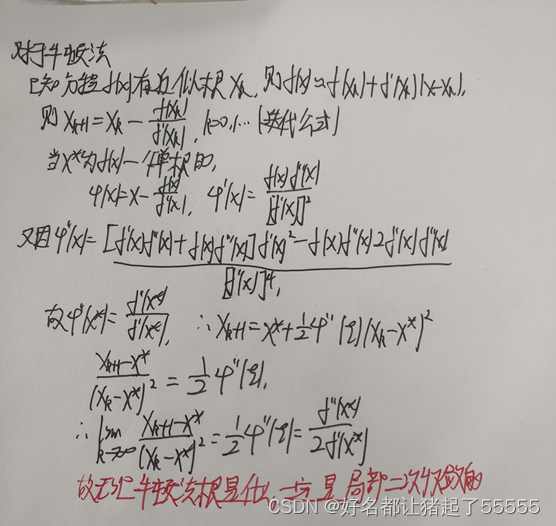 对于牛顿法
已知方程f(x)有近似根x_k, 则f(x)≈f(x_k)+f'(x_k)(x-x_k),
则 x_{k+1}=x_k-\frac{f(x_k)}{f'(x_k)}, k=0,1... (迭代公式)
当x*为f(x)一个单根时,
φ(x)=x-\frac{f(x)}{f'(x)}, φ'(x)=\frac{f(x)f''(x)}{[f'(x)]^2}
又因φ''(x)=\frac{[f'(x)f''(x)+f(x)f'''(x)]f'(x)^2-f(x)f''(x)2f'(x)f''(x)}{[f'(x)]^4},
故φ''(x*)=\frac{f''(x*)}{f'(x*)}, ∴x_{k+1}=x*+\frac{1}{2}φ''(ξ)(x_k-x*)^2
\frac{x_{k+1}-x*}{(x_k-x*)^2}=\frac{1}{2}φ''(ξ),
∴\lim_{k→∞}\frac{x_{k+1}-x*}{(x_k-x*)^2}=\frac{1}{2}φ''(ξ)=\frac{f''(x*)}{2f'(x*)}
故无论牛顿法根是什么,一定是局部二次收敛的
CSDN @好名都让猪起了55555